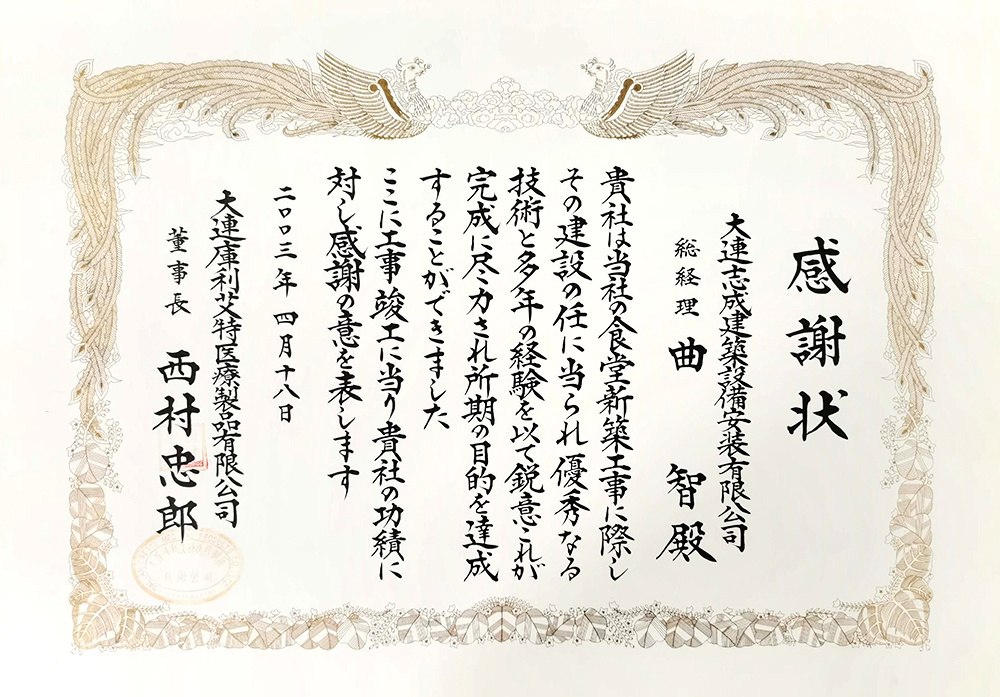 感謝状
大連志成建築設備安装有限公司
総経理 曲 智殿
貴社は当社の食堂新築工事に際し
その建設の任に当られ優秀なる
技術と多年の経験を以て鋭意これが
完成に尽力され所期の目的を達成
することができました
ここに工事竣工に当り貴社の功績に
対し感謝の意を表します
二〇〇三年四月十八日
大連庫利艾特医療製品有限公司
董事長 西村忠郎